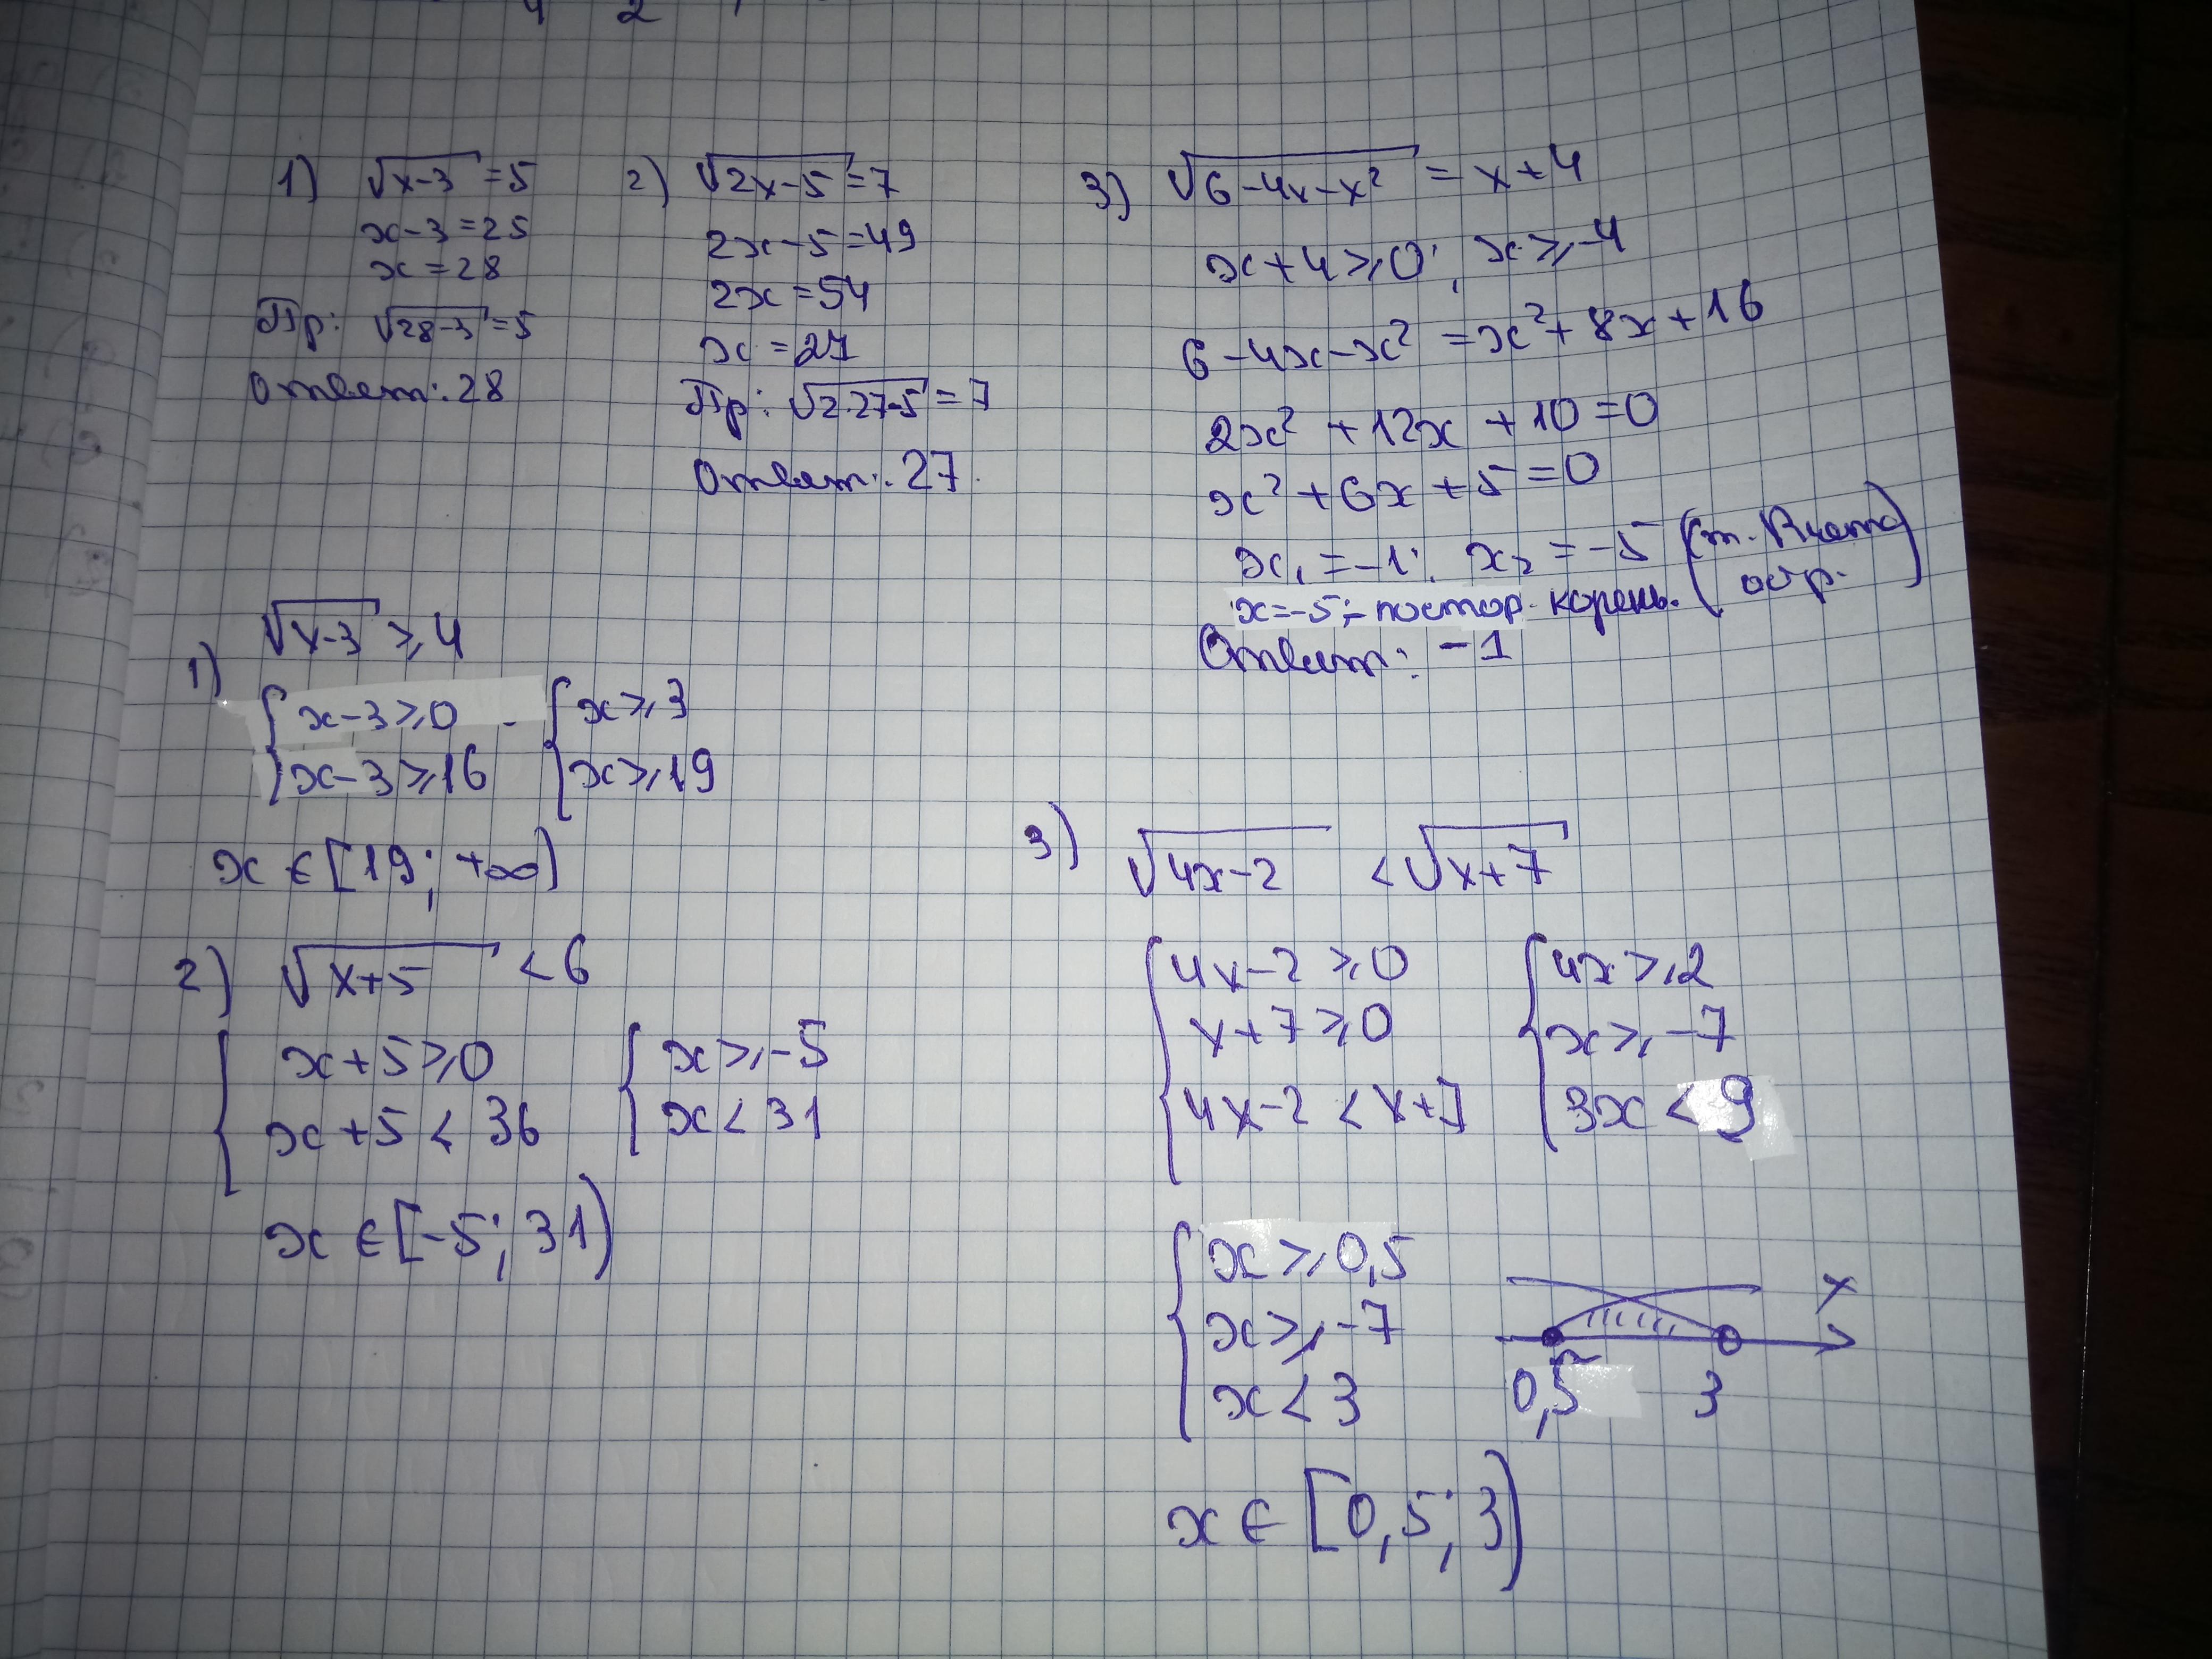 4 2
1) √x-3 = 5
x-3=25
x=28
Пр: √28-3=5
Ответ: 28
2) √2x-5=7
2x-5=49
2x=54
x=27
Пр: √2·27-5=7
Ответ: 27.
3) √6-4x-x² = x+4
x+4⩾0; x⩾-4
6-4x-x² = x²+8x+16
2x²+12x+10=0
x²+6x+5=0
x₁=-1; x₂=-5 (т. Виета
обр.)
x=-5;- постор. корень.
Ответ: -1
1) √x-3 ⩾4
{x-3⩾0 {x⩾3
{x-3⩾16 {x⩾19
x∈[19; +∞)
2) √x+5 <6
{x+5⩾0 {x⩾-5
{x+5<36 {x<31
x∈[-5; 31)
3) √4x-2 <√x+7
{4x-2⩾0 {4x⩾2
{x+7⩾0 {x⩾-7
{4x-2<x+7 {3x<9
{x⩾0,5
{x⩾-7
{x<3
x
0,5 3
x∈[0,5; 3)